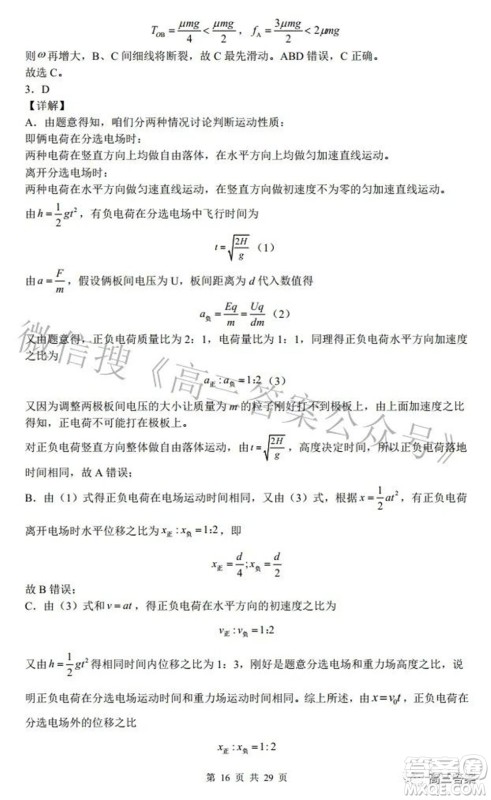 T_OB = μmg/4 < μmg/2 ， f_A = 3μmg/2 < 2μmg
则 ω 再增大，B、C 间细线将断裂，故 C 最先滑动。ABD 错误，C 正确。
故选 C。
3．D
【详解】
A．由题意得知，咱们分两种情况讨论判断运动性质：
即俩电荷在分选电场时：
两种电荷在竖直方向上均做自由落体，在水平方向上均做匀加速直线运动。
离开分选电场时：
两种电荷在水平方向做匀速直线运动，在竖直方向做初速度不为零的匀加速直线运动。
由 h = 1/2 gt²，有负电荷在分选电场中飞行时间为
t = √(2H/g)（1）
由 a = F/m，假设俩板间电压为 U，板间距离为 d 代入数值得
a负 = Eq/m = Uq/dm（2）
又由正负电荷质量比为 2：1，电荷量比为 1：1，同理得正负电荷水平方向加速度
之比为
a正 : a负 = 1:2（3）
又因为调整两极板间电压的大小让质量为 m 的粒子刚好打不到极板上，由上面公式得
知，正电荷不可能打在极板上。
对正负电荷竖直方向整体做自由落体运动，由 t = √(2H/g)，高度决定时间，所以俩电荷落地
时间相同，故 A 错误；
B．由（1）式得正负电荷在电场运动时间相同，又由（3）式，根据 x = 1/2 at²，有正负电荷
离开电场时水平位移之比为 x正 : x负 = 1:2，即
x正 = d/4 ; x负 = d/2
故 B 错误；
C．由（3）式和 v = at，得正负电荷在水平方向的初速度之比为
v正 : v负 = 1:2
又由 h = 1/2 gt² 得相同时间内位移之比为 1：3，刚好是题意分选电场和重力场高度之比，说
明正负电荷在分选电场运动时间和重力场运动时间相同。综上所述，由 x = v₀t，正负电荷在
分选电场外的位移之比为
x正 : x负 = 1:2
第 16 页 共 29 页
微信搜《高三答案公众号》